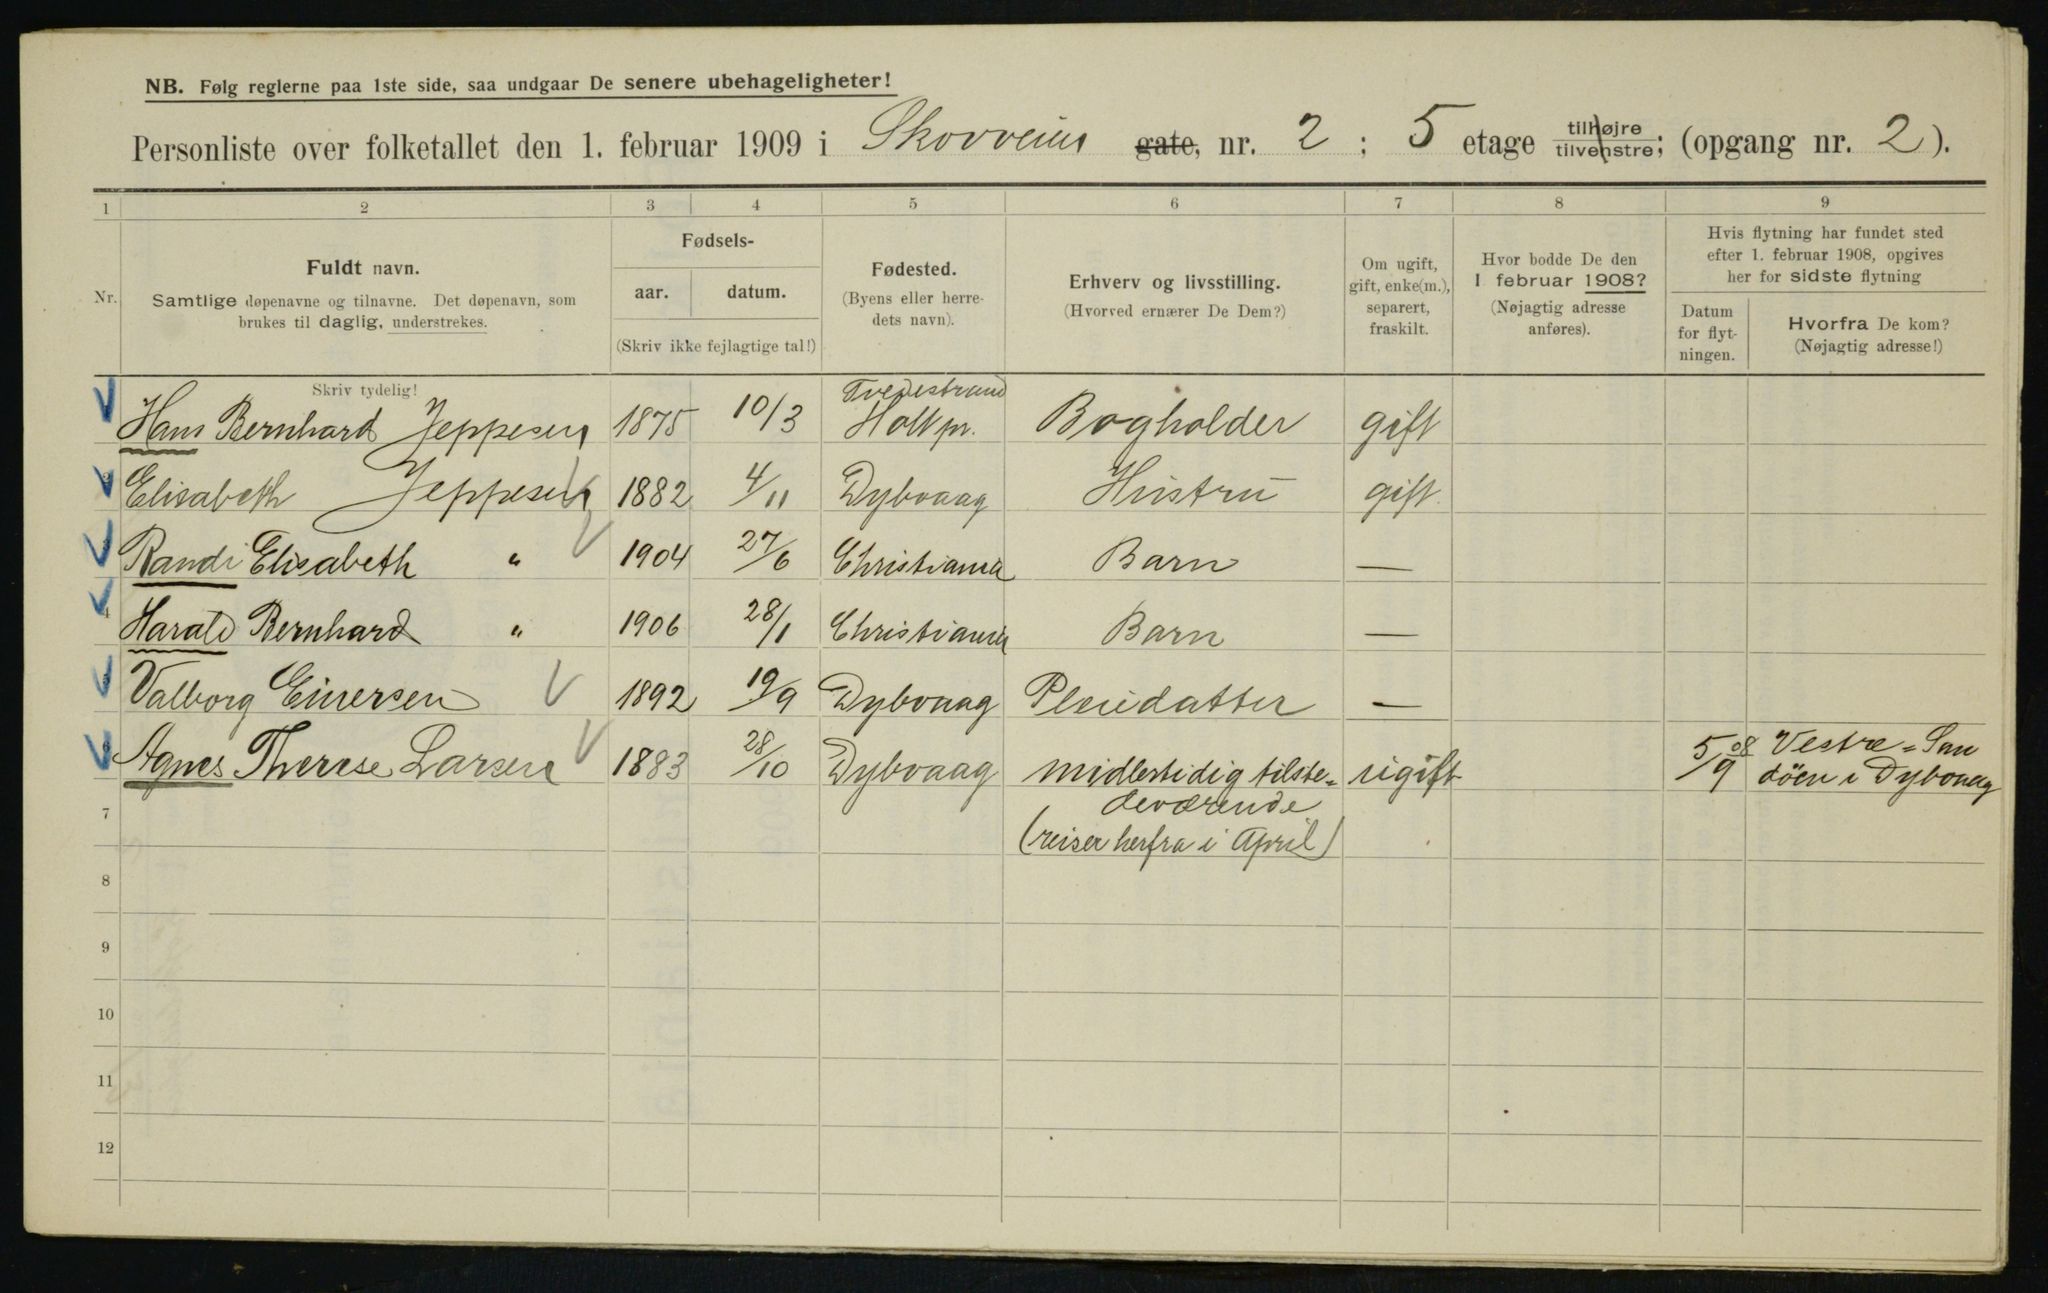 NB. Følg reglerne paa 1ste side, saa undgaar De senere ubehageligheter!
Personliste over folketallet den 1. februar 1909 i Skovveien gate, nr. 2 ; 5 etage tilhøjre tilvenstre; (opgang nr. 2 ).
1 2 3 4 5 6 7 8 9
Nr. Fuldt navn. Samtlige døpenavne og tilnavne. Det døpenavn, som brukes til daglig, understrekes.
Fødsels- aar. datum. (Skriv ikke fejlagtige tal!)
Fødested. (Byens eller herredets navn).
Erhverv og livsstilling. (Hvorved ernærer De Dem?)
Om ugift, gift, enke(m.), separert, fraskilt.
Hvor bodde De den 1 februar 1908? (Nøjagtig adresse anføres).
Hvis flytning har fundet sted efter 1. februar 1908, opgives her for sidste flytning
Datum for flytningen. Hvorfra De kom? (Nøjagtig adresse!)
Skriv tydelig!
Hans Bernhard Jeppesen 1875 10/3 Tvedestrand Holt pr. Bogholder gift
2 Elisabeth Jeppesen 1882 4/11 Dybvaag Hustru gift.
3 Randi Elisabeth " 1904 27/6 Christiania Barn —
4 Harald Bernhard " 1906 28/1 Christiania Barn —
5 Valborg Einersen 1892 19/9 Dybvaag Pleiedatter —
6 Agnes Therese Larsen 1883 28/10 Dybvaag midlertidig tilste= ugift 5/9 08 Vestre = San
deværende døen i Dybvaag
7 (reiser herfra i April)
8
9
10
11
12